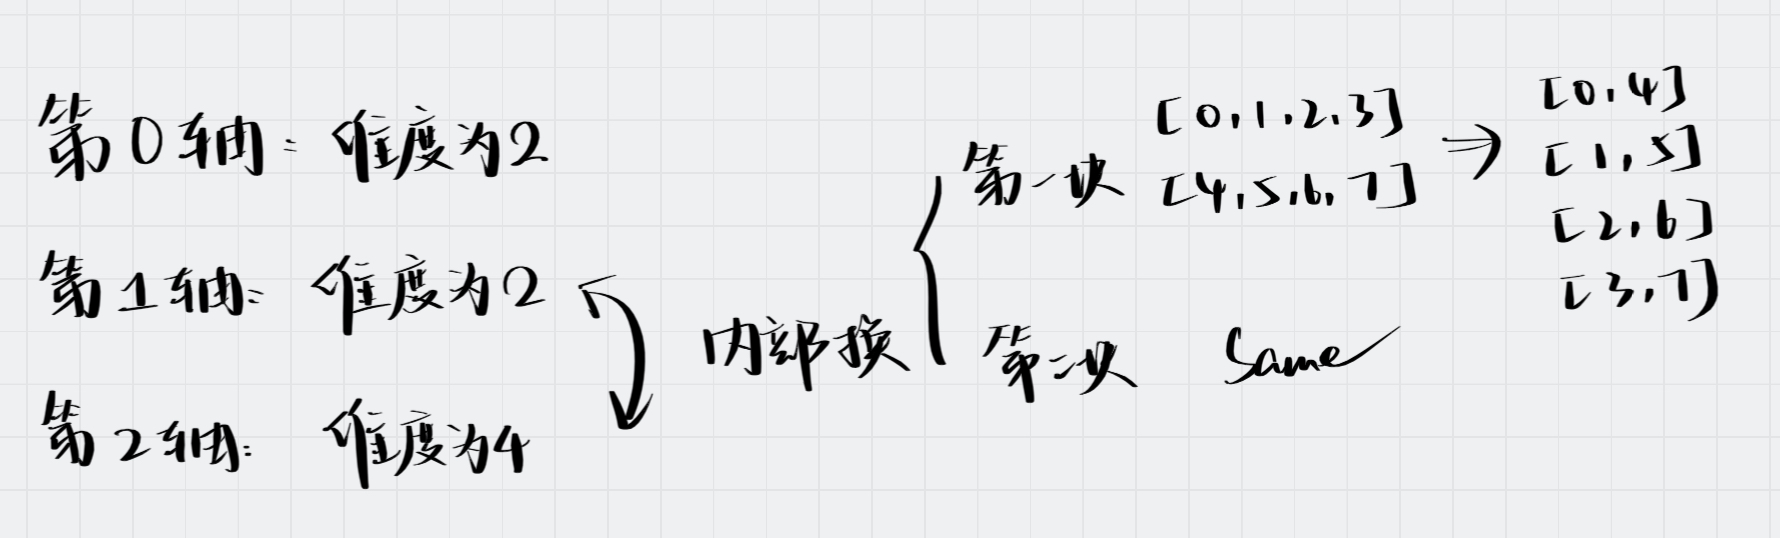 第0轴: 维度为2
第1轴: 维度为2
第2轴: 维度为4
内部换
第一块 [0,1,2,3]
[4,5,6,7]
→
[0,4]
[1,5]
[2,6]
[3,7]
第二块 Same